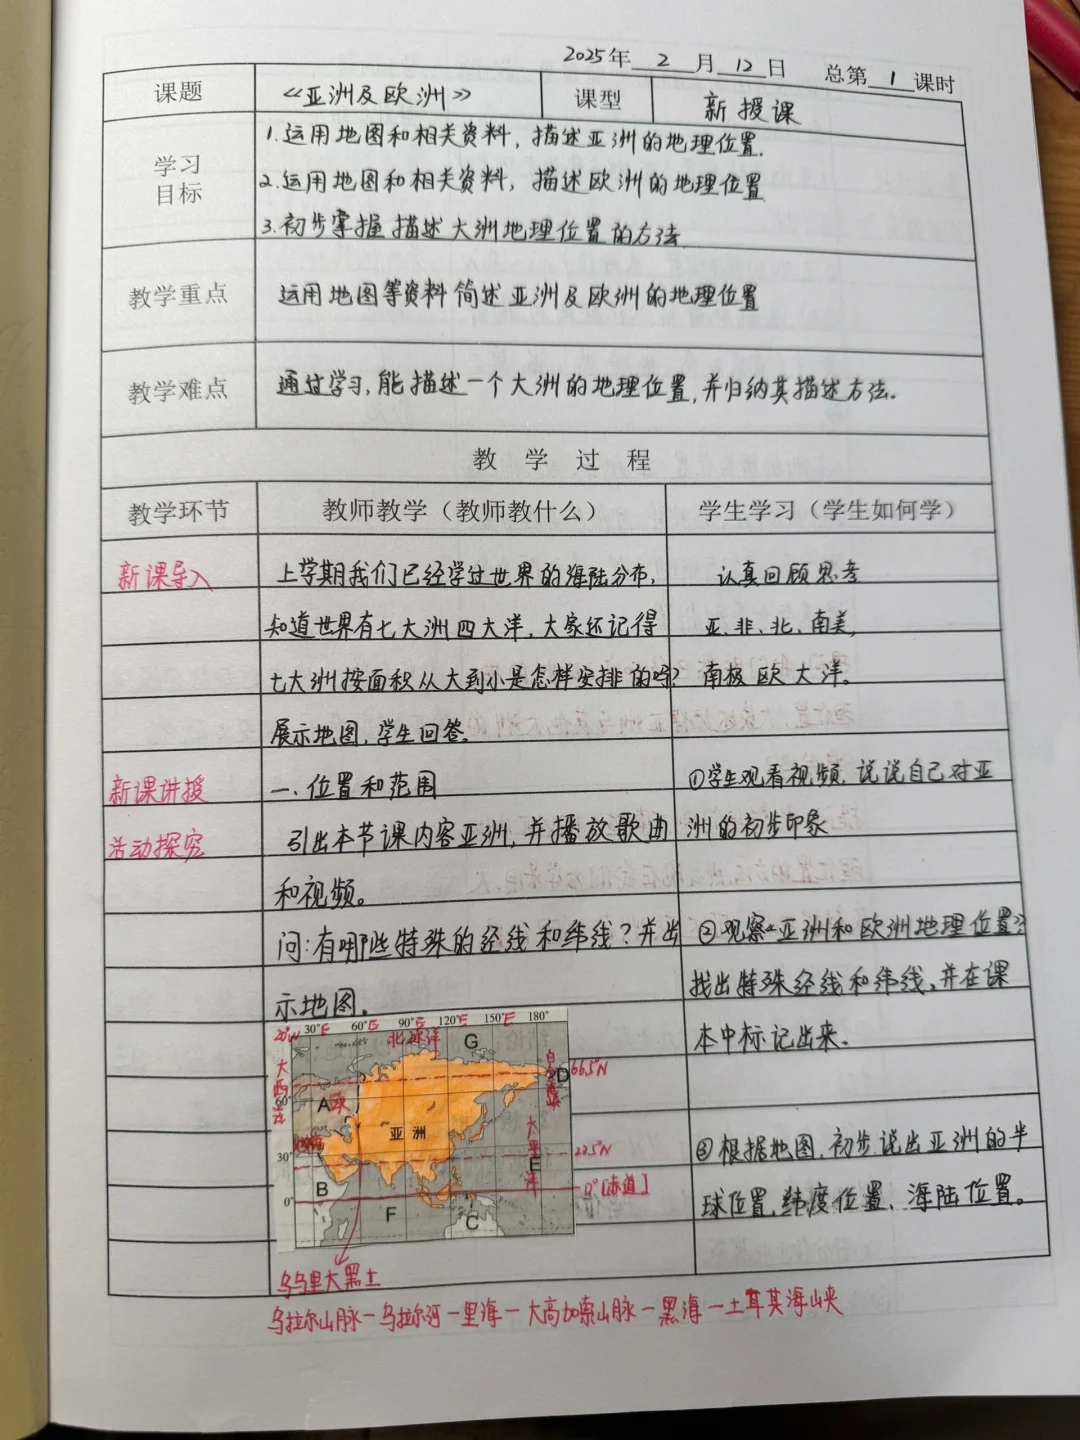 2025年 2 月 12 日 总第 1 课时
课题 《亚洲及欧洲》 课型 新授课
学习目标
1.运用地图和相关资料，描述亚洲的地理位置.
2.运用地图和相关资料，描述欧洲的地理位置
3.初步掌握描述大洲地理位置的方法
教学重点 运用地图等资料简述亚洲及欧洲的地理位置
教学难点 通过学习,能描述一个大洲的地理位置,并归纳其描述方法.
教学过程
教学环节 教师教学（教师教什么） 学生学习（学生如何学）
新课导入 上学期我们已经学过世界的海陆分布, 认真回顾思考
知道世界有七大洲四大洋,大家还记得 亚、非、北、南美,
七大洲按面积从大到小是怎样安排的吗? 南极 欧 大 洋。
展示地图,学生回答。
新课讲授 一、位置和范围 ①学生观看视频,说说自己对亚
活动探究 引出本节课内容亚洲,并播放歌曲 洲的初步印象
和视频。
问:有哪些特殊的经线和纬线?并出 ②观察“亚洲和欧洲地理位置”
示地图. 找出特殊经线和纬线,并在课
本中标记出来。
20°W 30°E 60°E 90°E 120°E 150°E 180°
北冰洋 G
大西洋 白令海峡 D 66.5°N
60°
A 欧
亚洲 太平洋 E
30° 23.5°N
B 0° 0°[赤道]
F C
③根据地图,初步说出亚洲的半
球位置,纬度位置、海陆位置。
乌乌里大黑土
乌拉尔山脉一乌拉尔河一里海一大高加索山脉一黑海一土耳其海峡